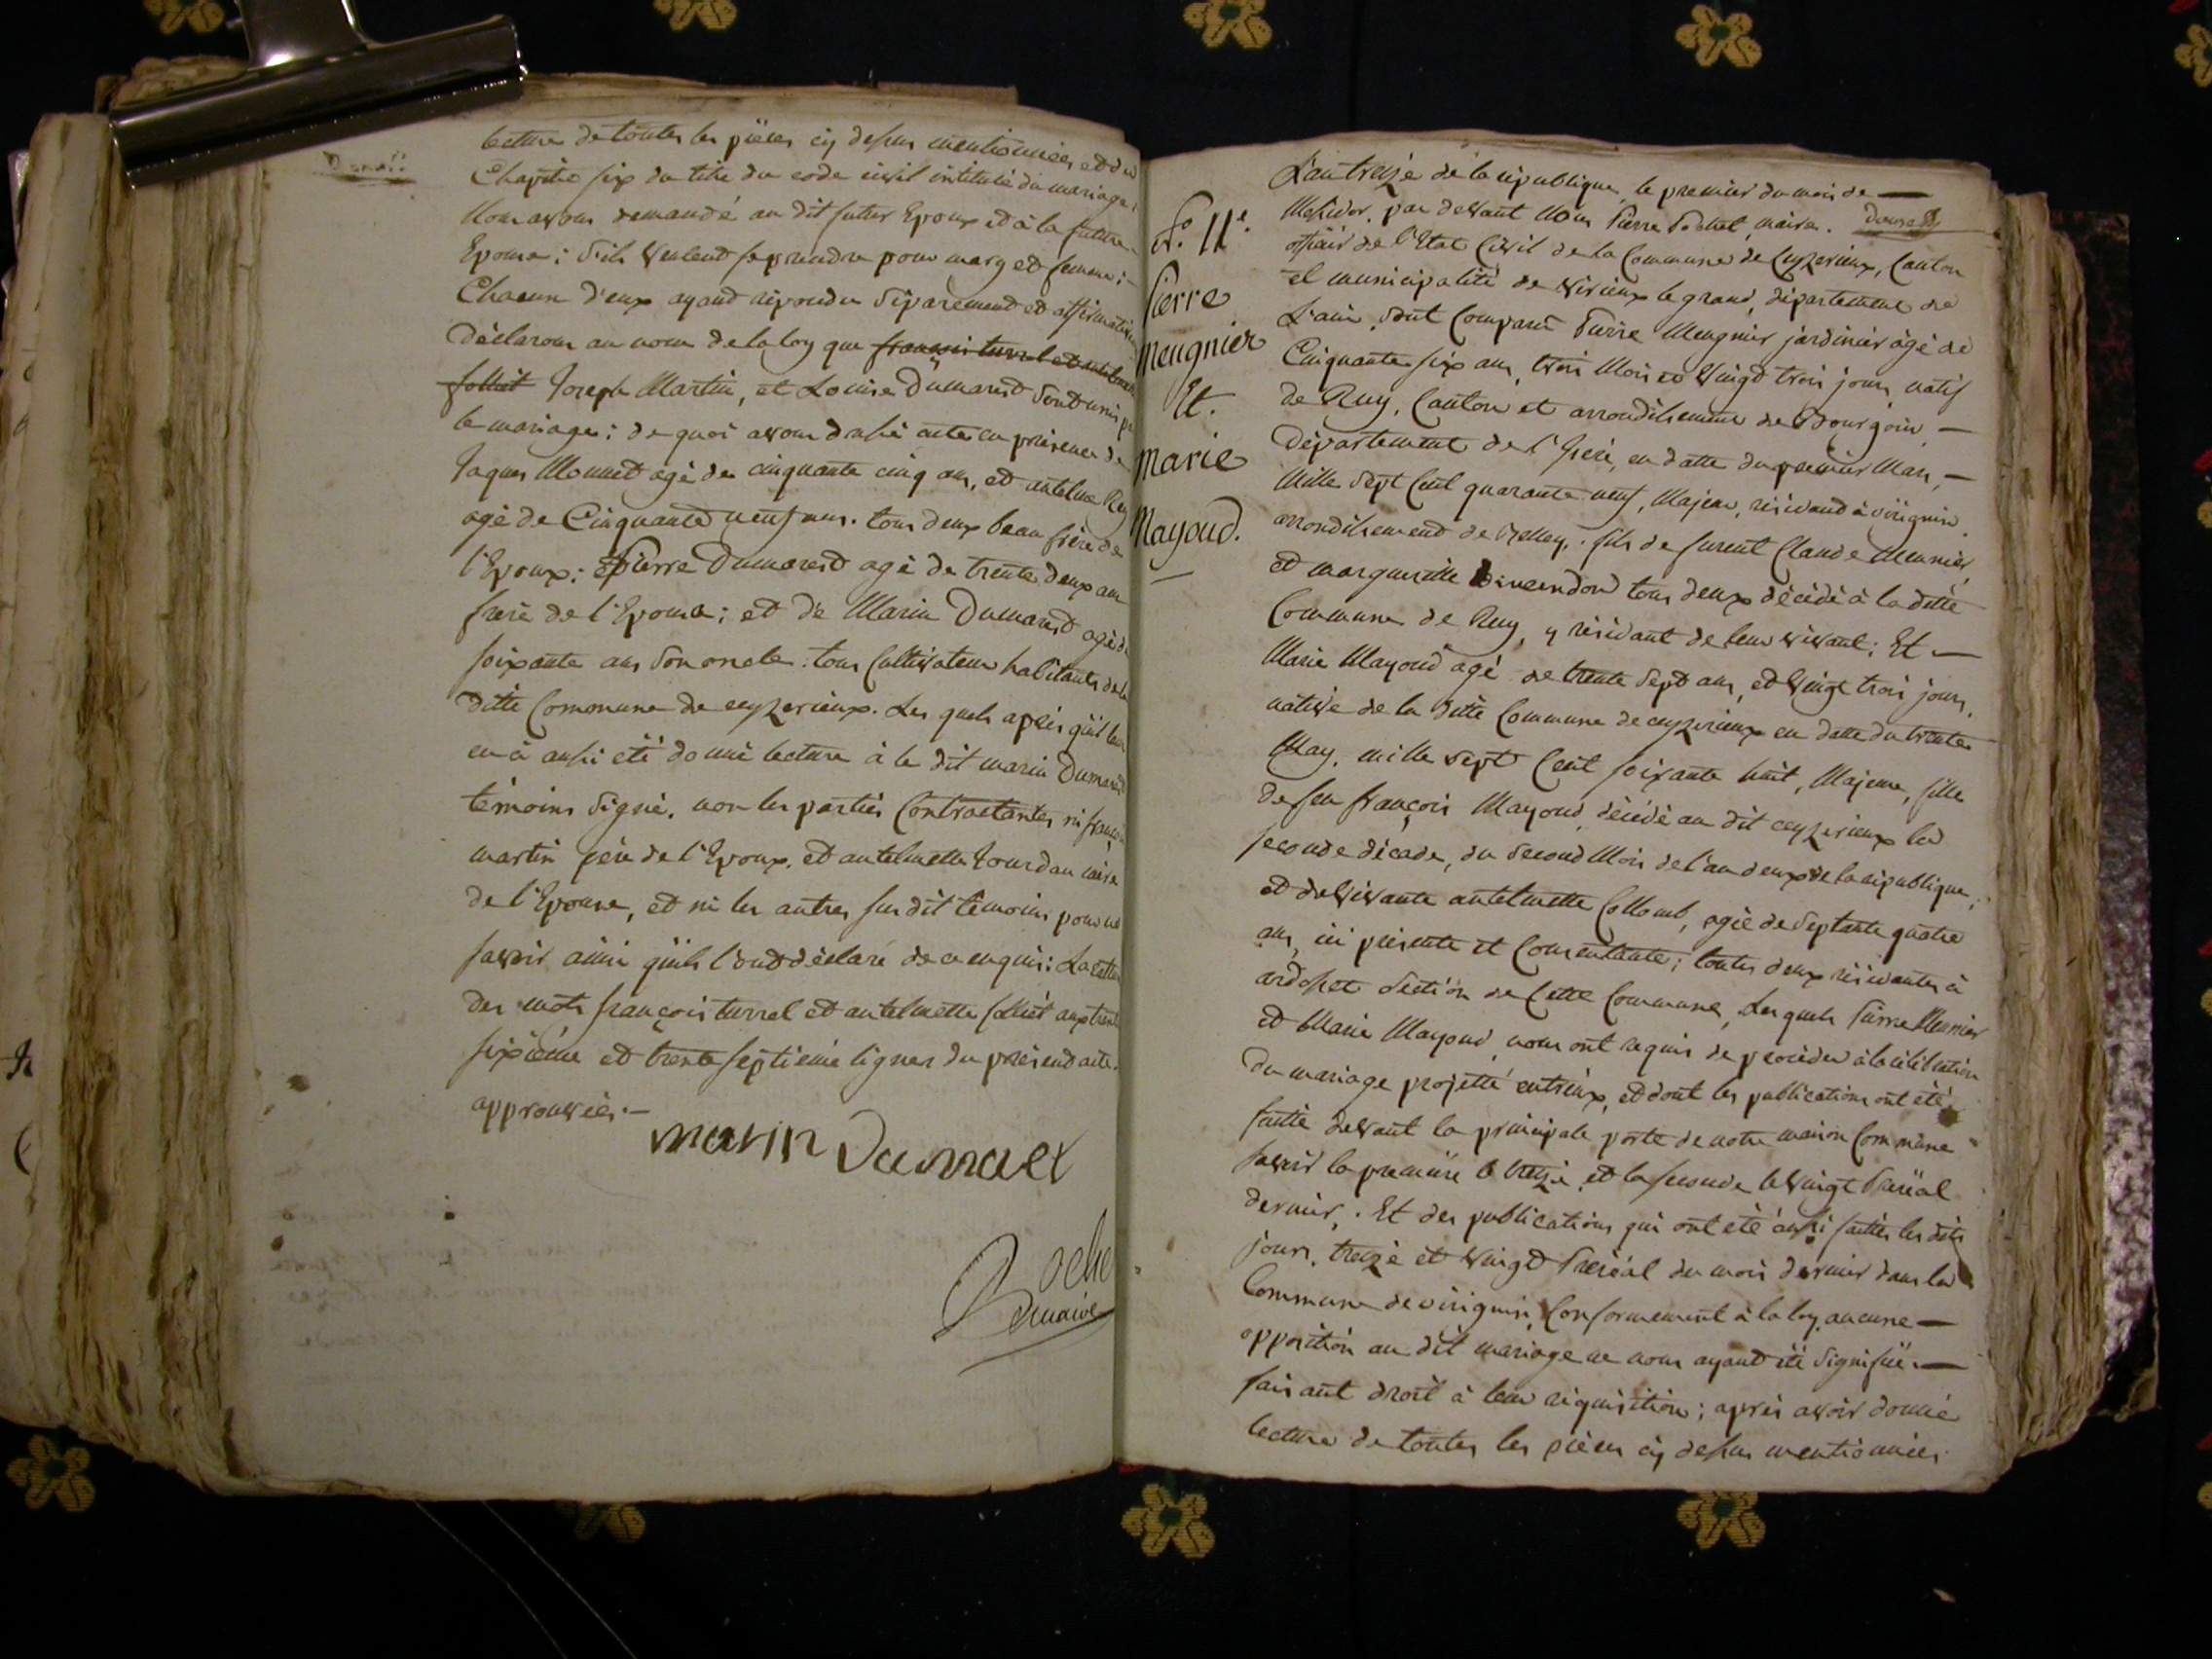 lecture de toutes les pièces cy dessus mentionnées et du
Chapitre six du titre du code civil intitulé du mariage;
Nous avons demandé au dit futur Epoux et à la future
Epouse; s'ils veulent se prendre pour mary et femme;
Chacun d'eux ayand répondu séparement et affirmativem
déclarons au nom de la loy que françois turrel et antelmette
folliet Joseph Martin, et Louise Dumarest sont unis par
le mariage; de quoi avons dressé acte en présence de
Jaques Monnet agé de cinquante cinq ans, et antelme Rey
agé de Cinquante neuf ans. tous deux beau frère de
l'Epoux; Pierre Dumarest agé de trente deux ans
frere de l'Epouse; et de Marin Dumarest agé de
soixante ans son oncle. tous Cultivateur habitants de la
ditte Commune de ceyzerieux. Les quels après qu'il leur
en à aussi été donné lecture à le dit marin Dumarest
témoins signé. non les parties Contractantes ni françois
martin père de l'Epoux, et antelmette Jourdan mère
de l'Epouse, et ni les autres sus dit témoins pour ne
savoir ainsi qu'ils l'ont déclaré de ce enquis; La rature
des mots françois turrel et antelmette folliet aux trente
sixième et trente septieme lignes du présent acte
approuvée.—
marin Dumaret
Pochet
maire
N.o 11e
Pierre
Meugnier
Et.
Marie
Mayoud.
L'an treize de la république le premier du mois de —
Messidor, par devant Nous Pierre Pochet, maire.
officier de l'Etat Civil de la Commune de Ceyzerieux, Canton
et municipalité de Virieux le grand, département de
L'ain, sont Comparu Pierre Meugnier jardinier âgé de
Cinquante six ans, trois Mois et vingt trois jours natif
de Ruy, Canton et arrondissement de Bourgoin —
département de l'Isere, en datte du premier Mars, —
Mille sept Cent quarante neuf, Majeur, résidand à virignin.
arrondissement de Belley, fils de furent Claude Meunier
et marguerite tous deux décédé à la ditte
Commune de Ruy, y résidant de leur vivant; Et —
Marie Mayoud agé de trente sept ans, et vingt trois jours,
native de la ditte Commune de ceyzerieux en datte du trente
May, mille sept Cent soixante huit, Majeure, fille
de feu françois Mayoud, décédé au dit ceyzerieux la
seconde décade, du second Mois de l'an deux de la république;
et de vivante antelmette Collomb, agée de septante quatre
ans, ici présente et Consentante; toutes deux résidantes à
ardosset section de Cette Commune, Les quels Pierre Meunier
et Marie Mayoud, nous ont requis de procéder à la célébration
du mariage projetté entr'eux, et dont les publications ont été
faitte devant la principale porte de notre maison Commune
savoir la première le treize, et la seconde le vingt Prerial
dernier,. Et des publications qui ont été aussi faittes les dits
jours, treize et vingt Prerial du mois dernier dans la
Commune de virignin, Conformement à la loy, aucune —
opposition au dit mariage ne nous ayand été signifiée —
faisant droit à leur réquisition; après avoir donné
lecture de toutes les pièces cy dessus mentionnées